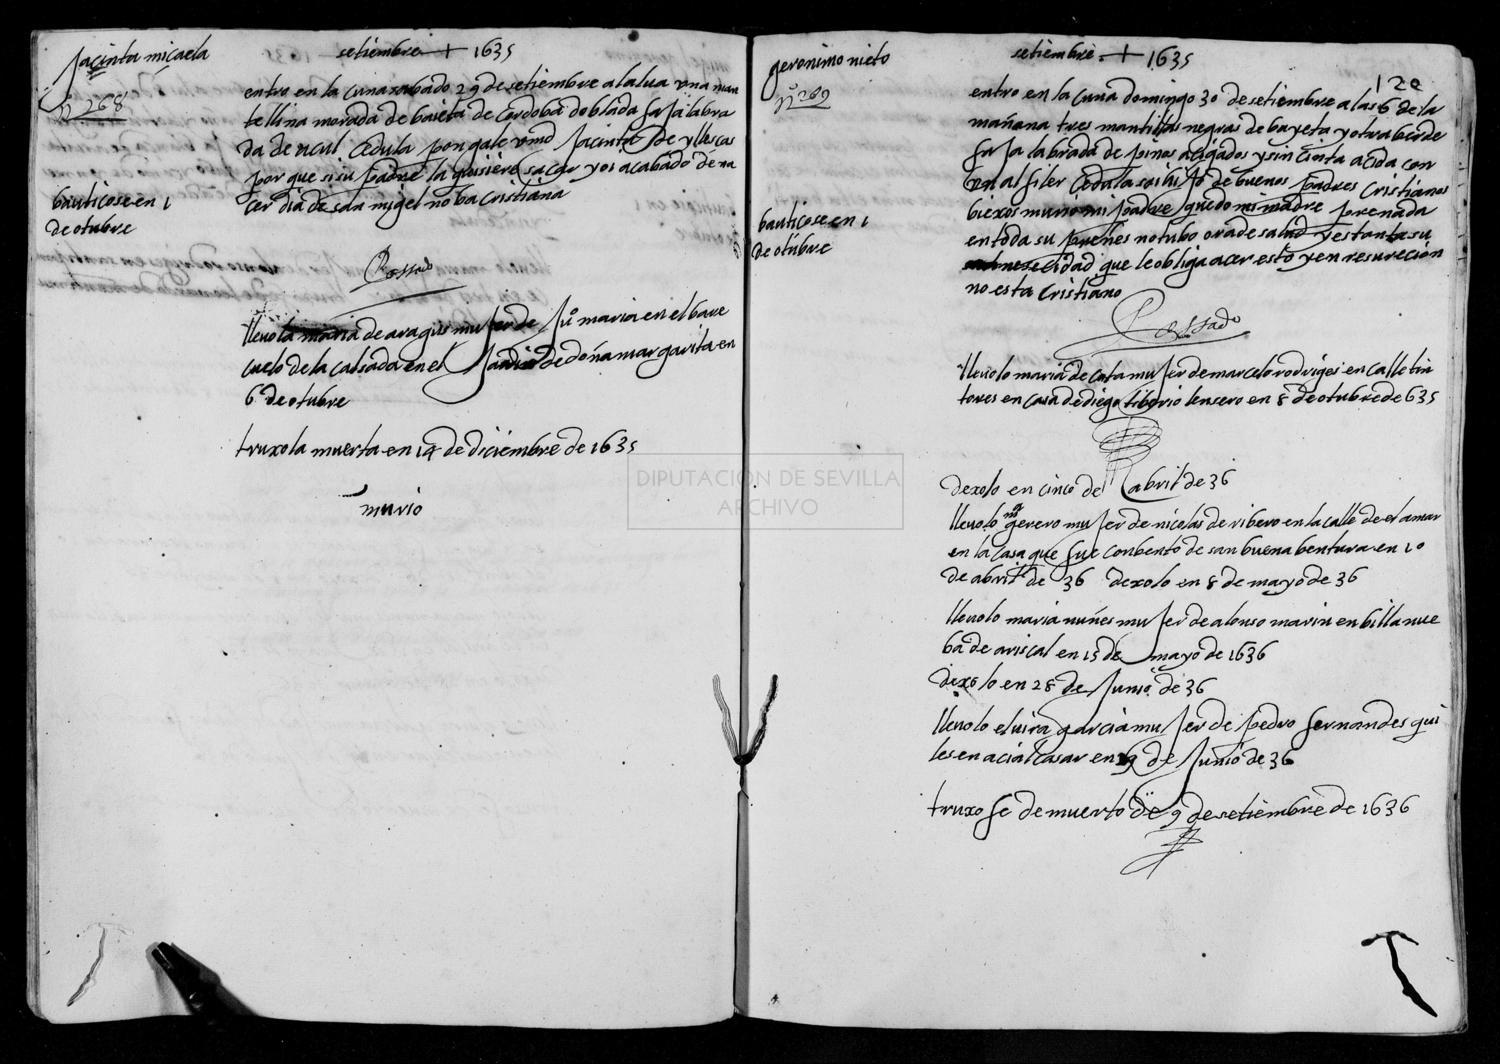 Jacinta micaela
nº 268
setiembre + 1635
entro en la cuna sabado 29 de setiembre a la lua una man
tellina morada de baieta de Cordoba doblada faja labra
da de açul Cedula pongale vmd Jacinta de yllescas
por que si su padre la quisiere sacar y os acabado de na
cer dia de san migel no ba Cristiana
bauticose en 1
de otubre
Rossado
lleuola maria de aragus mujer de juº maria en el bare
cuelo de la calsada en el Jardin de doña margarita en
6 de otubre
truxola muerta en 14 de diciembre de 1635
murio
geronimo nieto
nº 269
setiembre + 1635
120
entro en la cuna domingo 30 de setiembre a las 6 de la
mañana tres mantillas negras de bayeta y otra berde
faja labrada de pinos açigados y sin cinta acida con
un alfiler Cedula soi hijo de buenos padres Cristianos
biexos murio mi padre quedo mi madre prenada
en toda su preñes no tubo ora de salud y es tanta su
nesecidad que le obliga acer esto y en resurecion
no esta Cristiano
bauticose en 1
de otubre
Rossado
lleuolo maria de cota mujer de marcelo rodriges en calle tin
tores en casa de diego tiberio lensero en 8 de otubre de 635
dexolo en cinco de abril de 36
lleuolo mª gerero mujer de nicolas de ribero en la calle de el amar
en la casa que fue conbento de san buena bentura en 10
de abril de 36 dexolo en 8 de mayo de 36
lleuolo maria nuñes mujer de alonso marin en billa nue
ba de ariscal en 15 de mayo de 1636
dexolo en 28 de Junio de 36
lleuolo eluira garcia mujer de pedro fernandes qui
les en acialcasar en 29 de Junio de 36
truxo fe de muerto de 9 de setiembre de 1636
DIPUTACIÓN DE SEVILLA
ARCHIVO